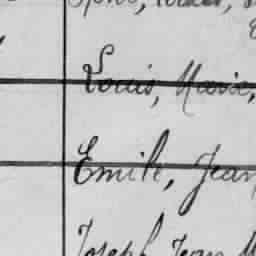 Louis, Marie,
Emile, Jean
Joseph Jean M